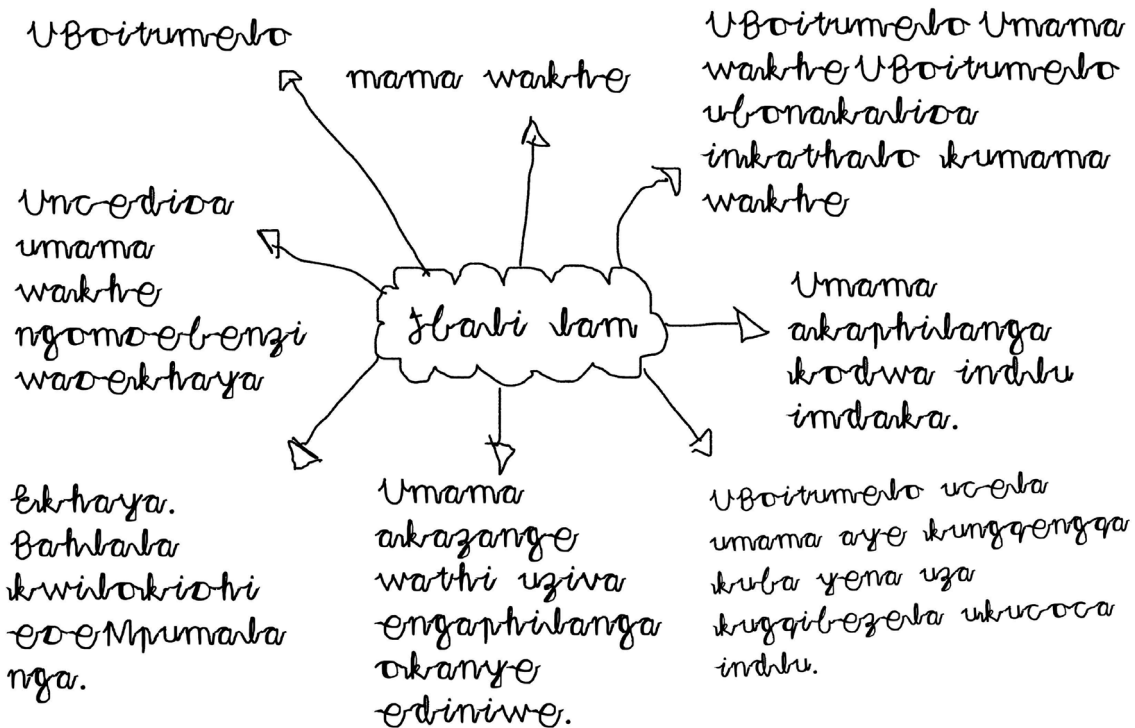 UBoitumelo
mama wakhe
UBoitumelo Umama
wakhe UBoitumelo
ubonakalisa
inkathalo kumama
wakhe
Uncedisa
umama
wakhe
ngomsebenzi
wasekhaya
Ibali lam
Umama
akaphilanga
kodwa indlu
imdaka.
Ekhaya.
Bahlala
kwilokishi
eseMpumala
nga.
Umama
akazange
wathi uziva
engaphilanga
okanye
ediniwe.
UBoitumelo ucela
umama aye kungqengqa
kuba yena uza
kugqibezela ukucoca
indlu.